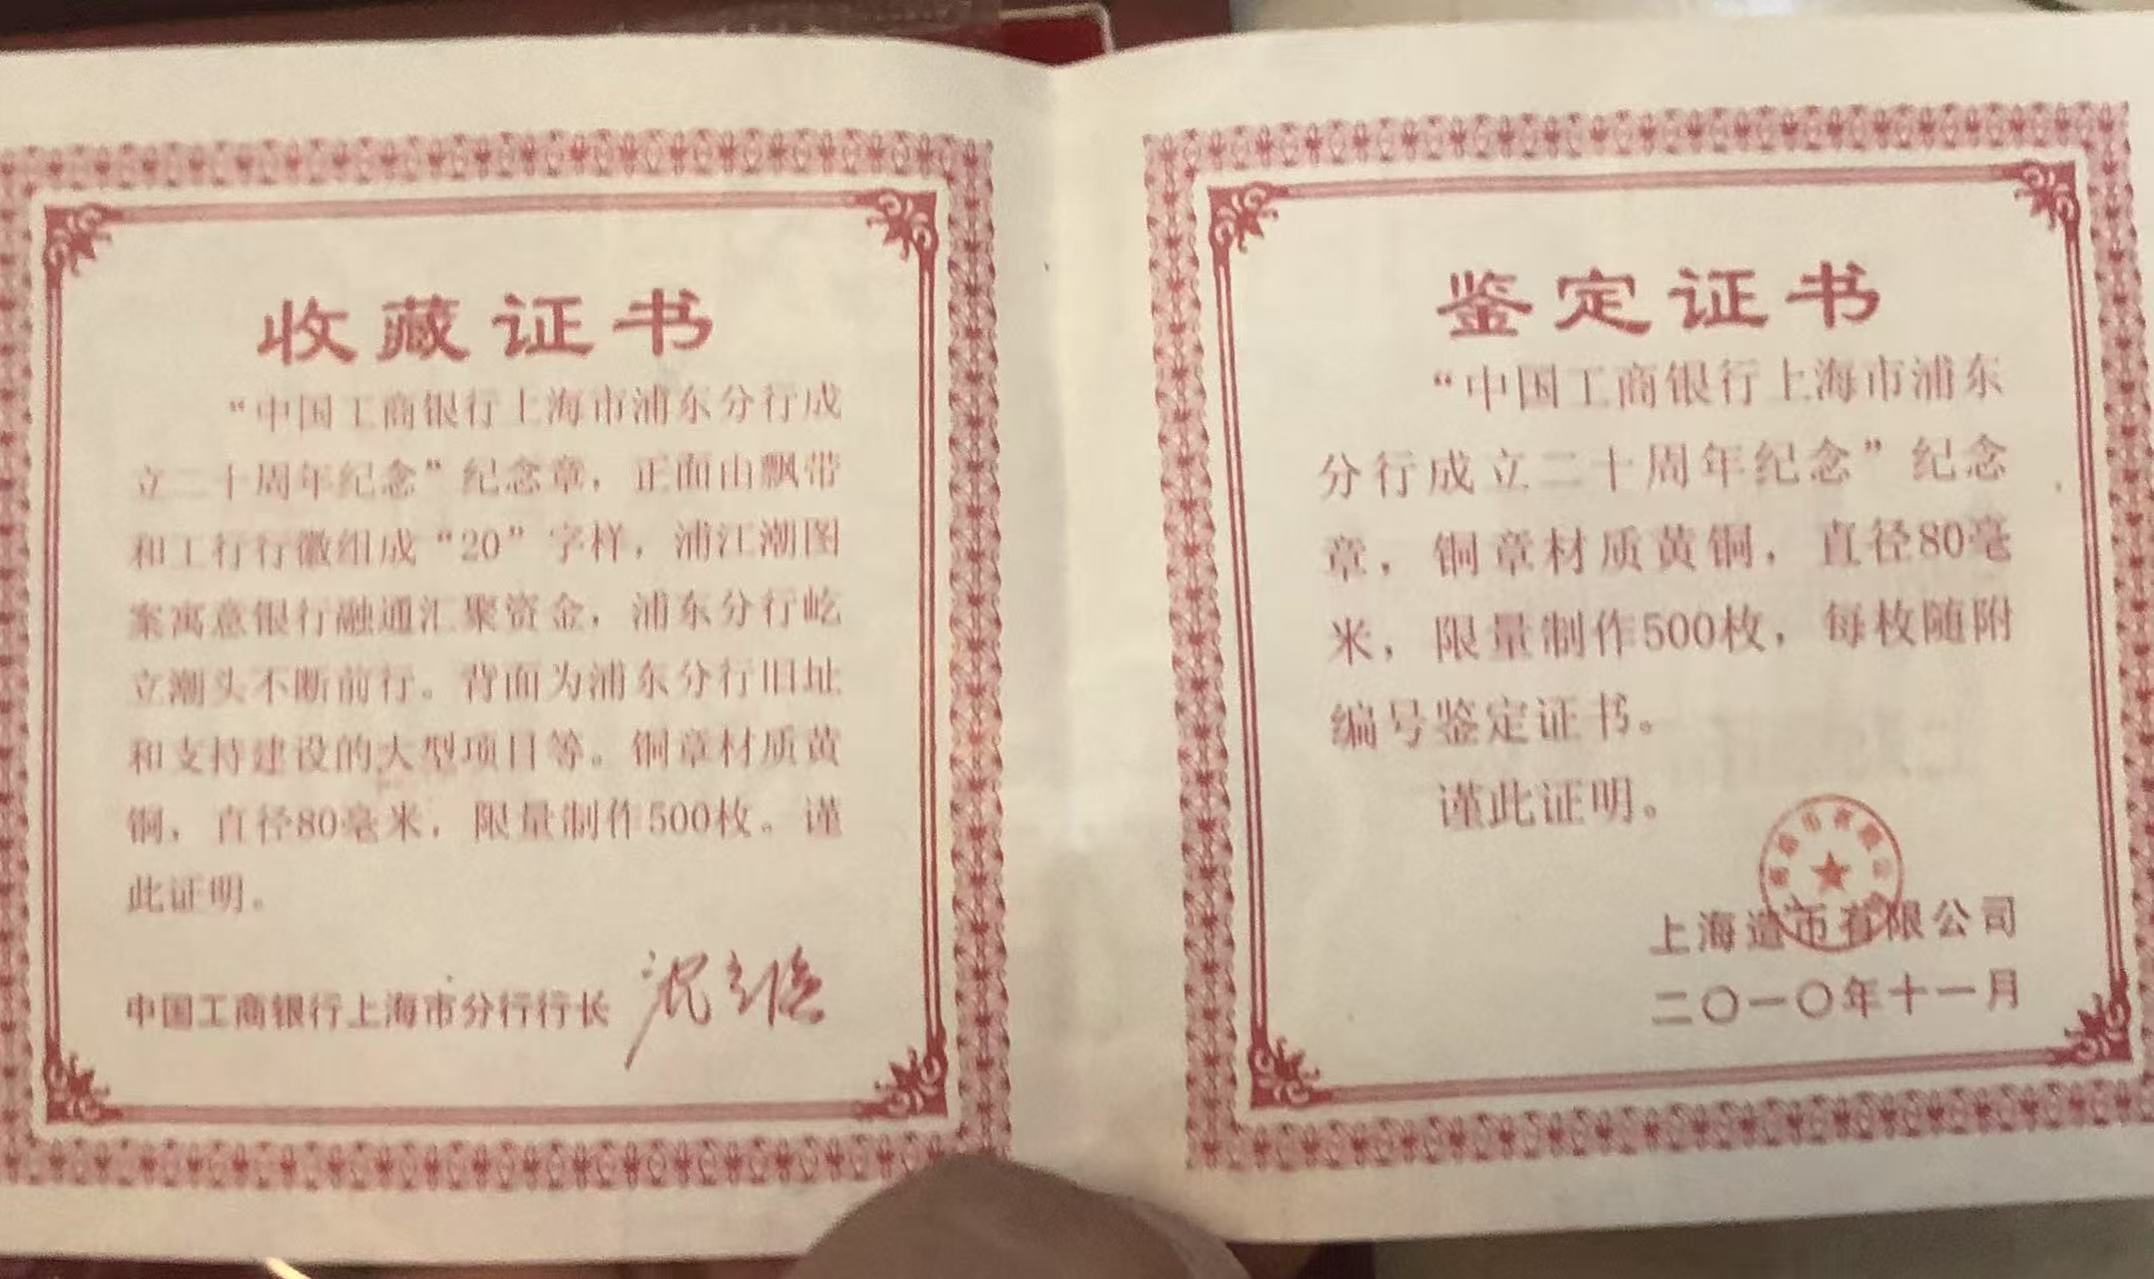 收藏证书
“中国工商银行上海市浦东分行成
立二十周年纪念”纪念章，正面由飘带
和工行行徽组成“20”字样，浦江潮图
案寓意银行融通汇聚资金，浦东分行屹
立潮头不断前行。背面为浦东分行旧址
和支持建设的大型项目等。铜章材质黄
铜，直径80毫米，限量制作500枚。谨
此证明。
中国工商银行上海市分行行长
鉴定证书
“中国工商银行上海市浦东
分行成立二十周年纪念”纪念
章，铜章材质黄铜，直径80毫
米，限量制作500枚，每枚随附
编号鉴定证书。
谨此证明。
上海造币有限公司
二〇一〇年十一月